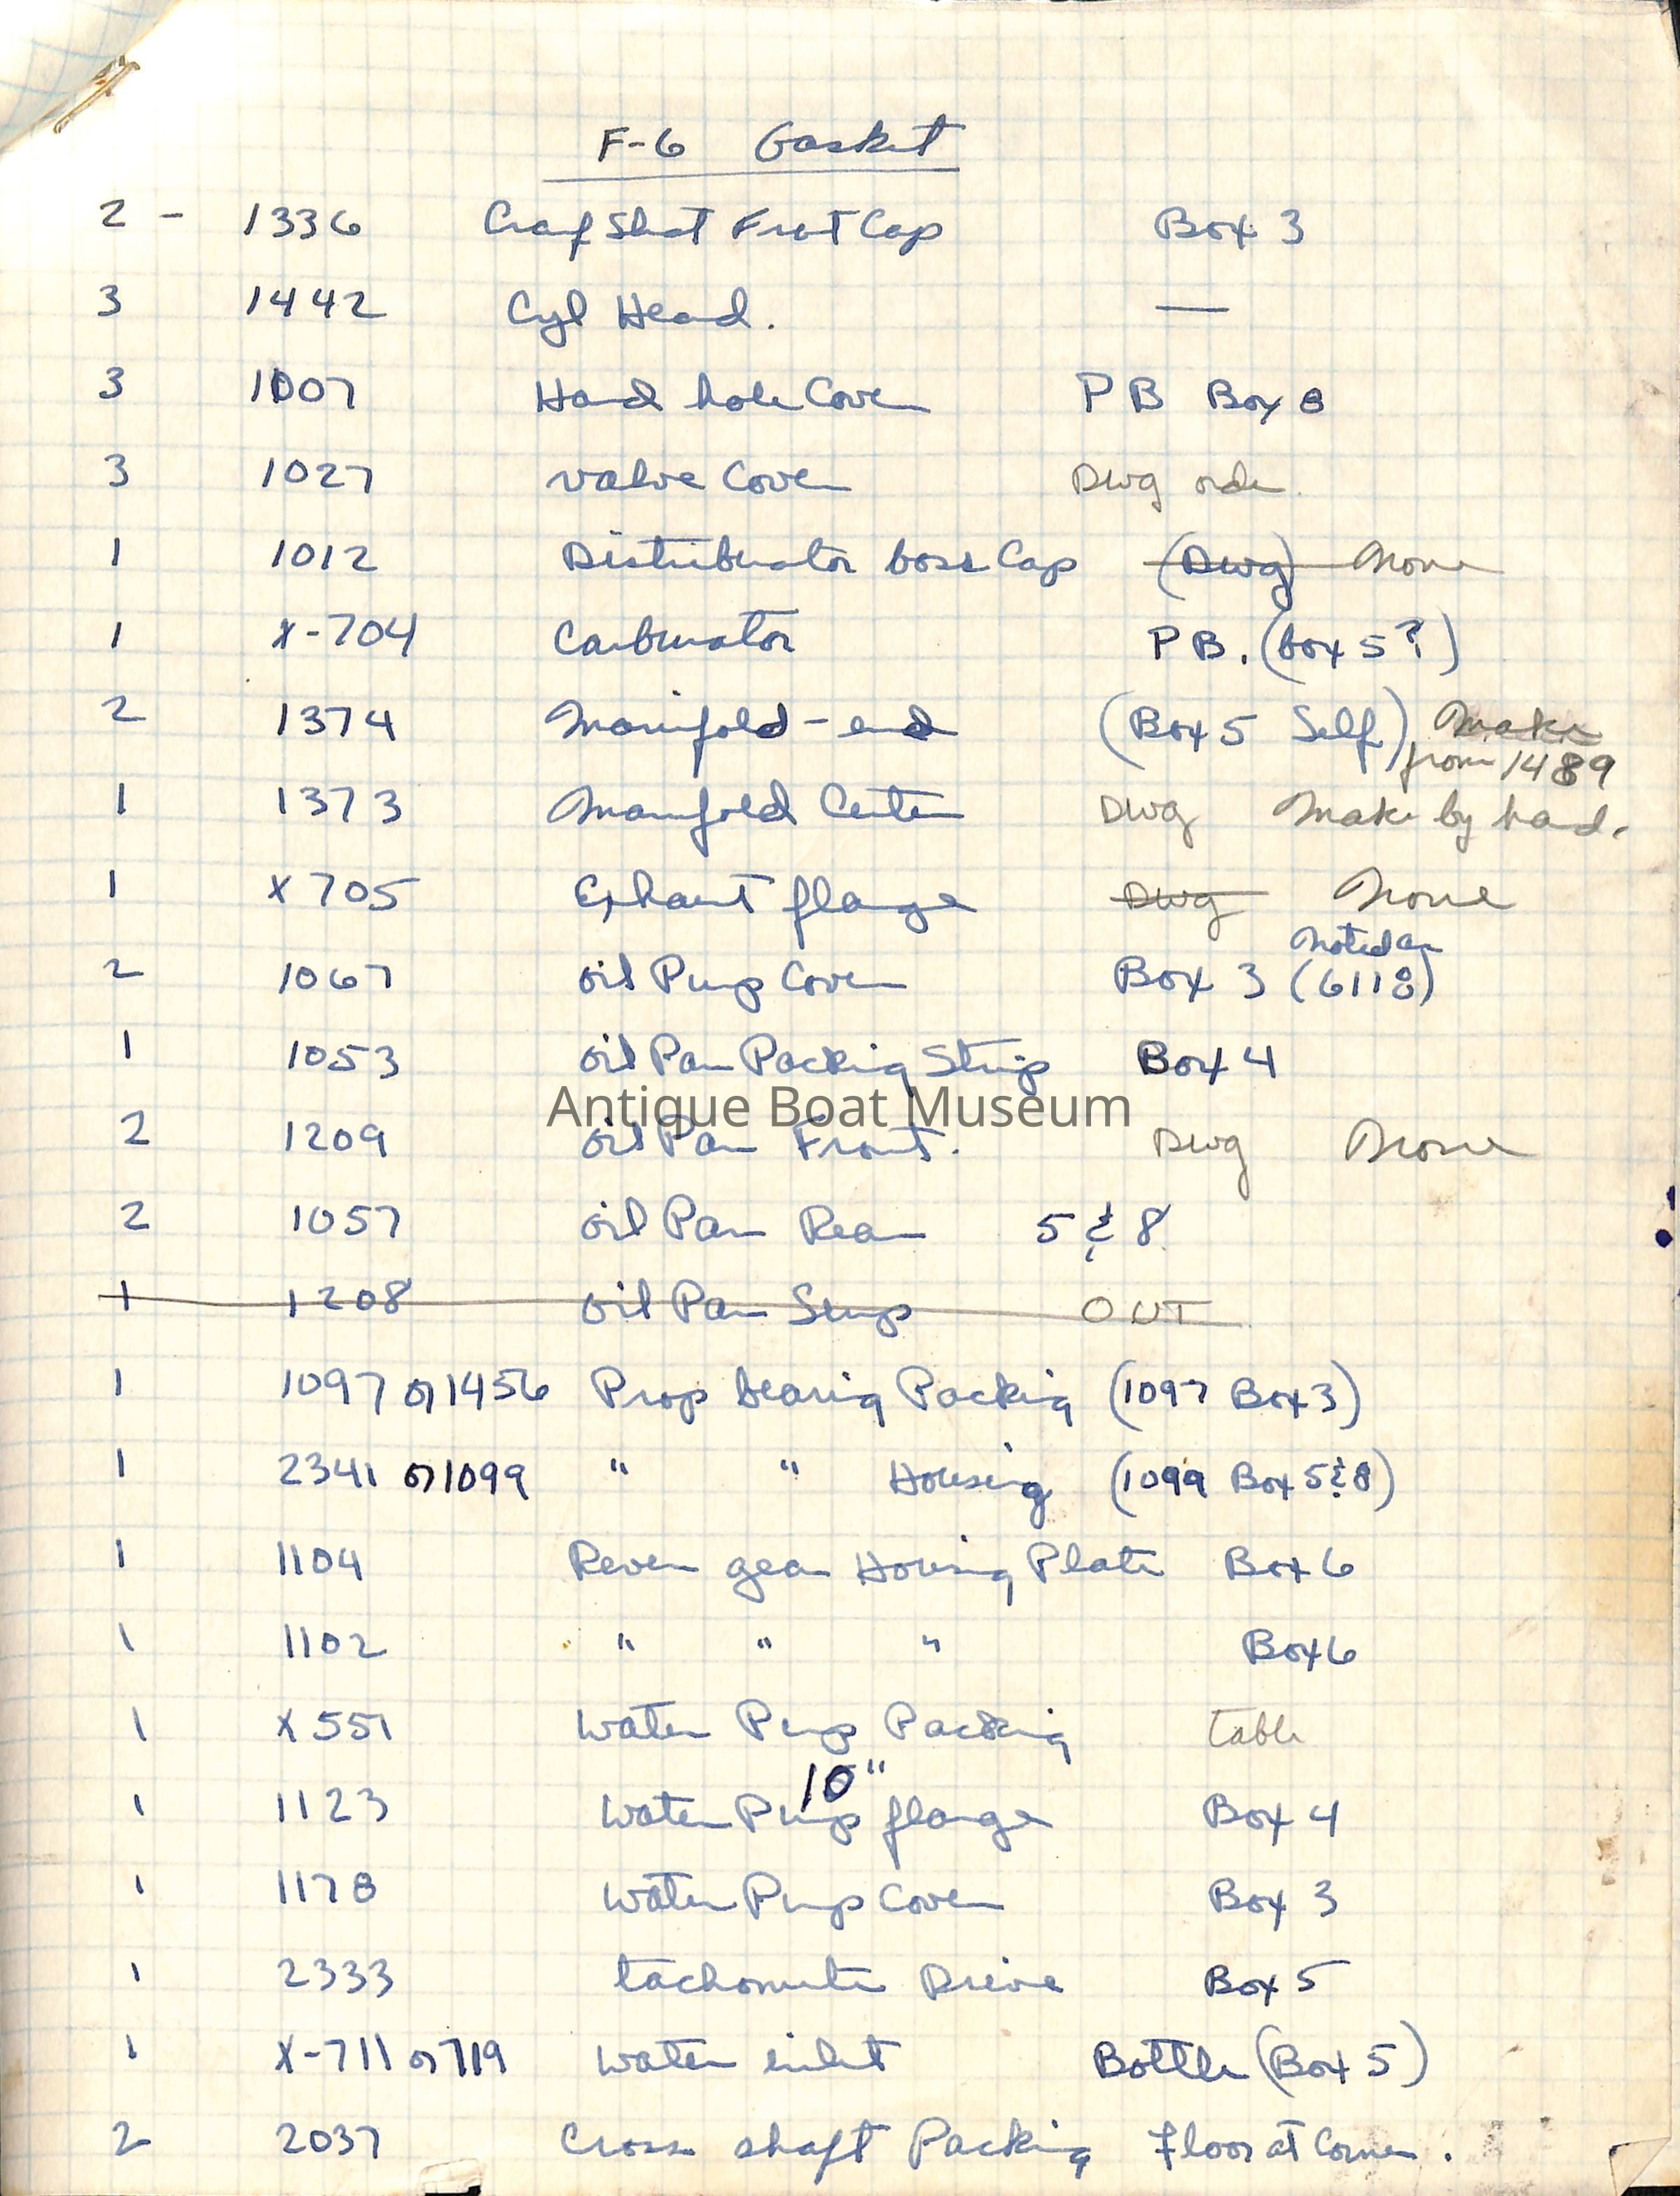 F-6 Gasket
2 - 1336 Cranf Shaft Front Cap Box 3
3 1442 Cyl Head. —
3 1007 Hand hole Cover PB Box 8
3 1027 valve Cover Dwg order
1 1012 Distributor boss Cap (Dwg) None
1 X-704 Carburator PB. (box 5?)
2 1374 Manifold-end (Box 5 Self) Make
from 1489
1 1373 Manifold Center Dwg Make by hand.
1 X705 Exhaust flange Dwg None
noted as
2 1067 oil Pump Cover Box 3 (6118)
1 1053 oil Pan Packing Strip Box 4
Antique Boat Museum
2 1209 oil Pan Front. Dwg None
2 1057 oil Pan Rear 5 & 8
1 1208 oil Pan Sump OUT
1 1097 or 1456 Prop bearing Packing (1097 Box 3)
1 2341 or 1099 " " Housing (1099 Box 5 & 8)
1 1104 Rever gear Housing Plate Box 6
1 1102 " " " Box 6
1 X551 Water Pump Packing table
10"
1 1123 Water Pump flange Box 4
1 1178 Water Pump Cover Box 3
1 2333 tachometer Drive Box 5
1 X-711 or 719 Water inlet Bottle (Box 5)
2 2037 Cross shaft Packing Floor at Corner.